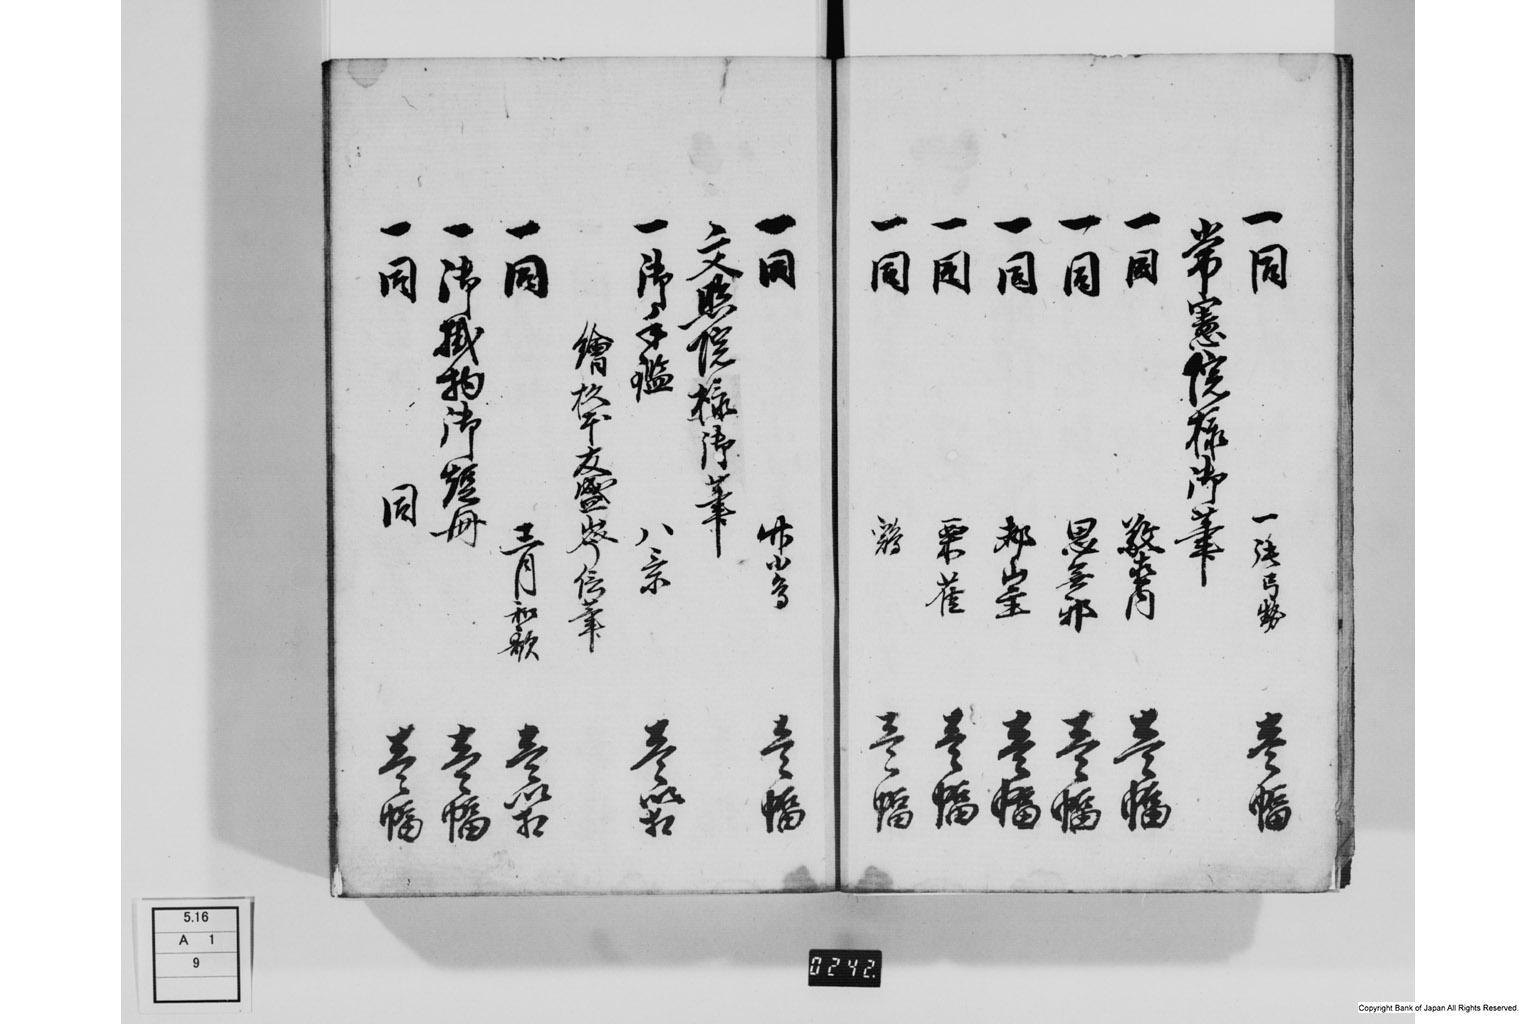 一同 一張弓勢 壱幅
常憲院様御筆
一同 敬斎 壱幅
一同 思無邪 壱幅
一同 壱幅
一同 粟 壱幅
一同 鶏 壱幅
一同 竹小鳥 壱幅
文照院様御筆
一御手鑑 八景 壱箱
繪 友盛岑信筆
一同 十二月和歌 壱箱
一御掛物御短冊 壱幅
一同 同 壱幅
5.16
A 1
9
0242.
Copyright Bank of Japan All Rights Reserved.